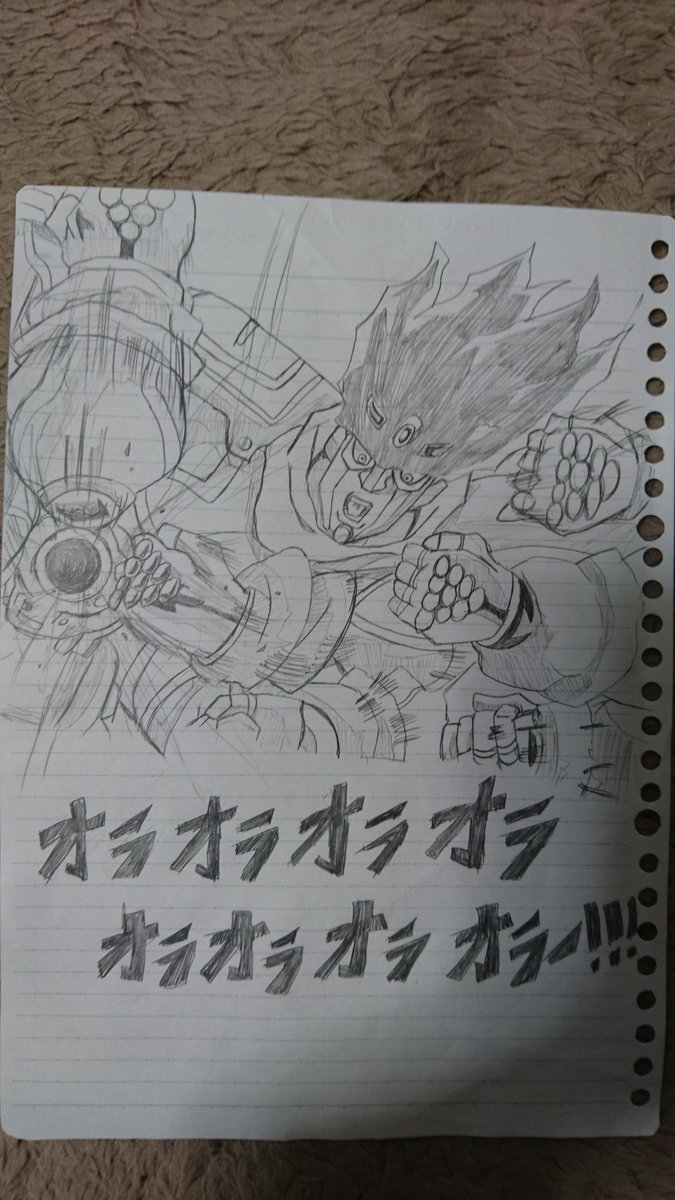 オラオラオラオラ
オラオラオラオラー!!!